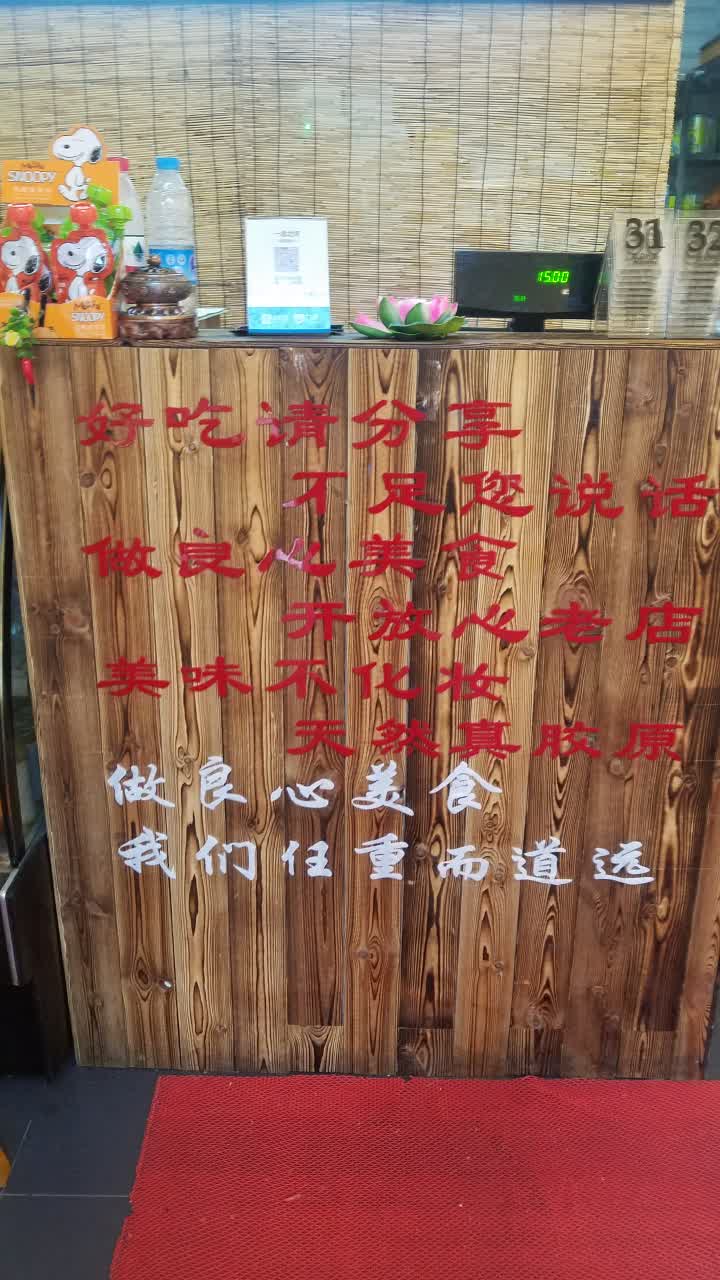 SNOOPY
15.00
31
32
SNOOPY
好吃请分享
不足您说话
做良心美食
开放心老店
美味不化妆
天然真胶原
做良心美食
我们任重而道远